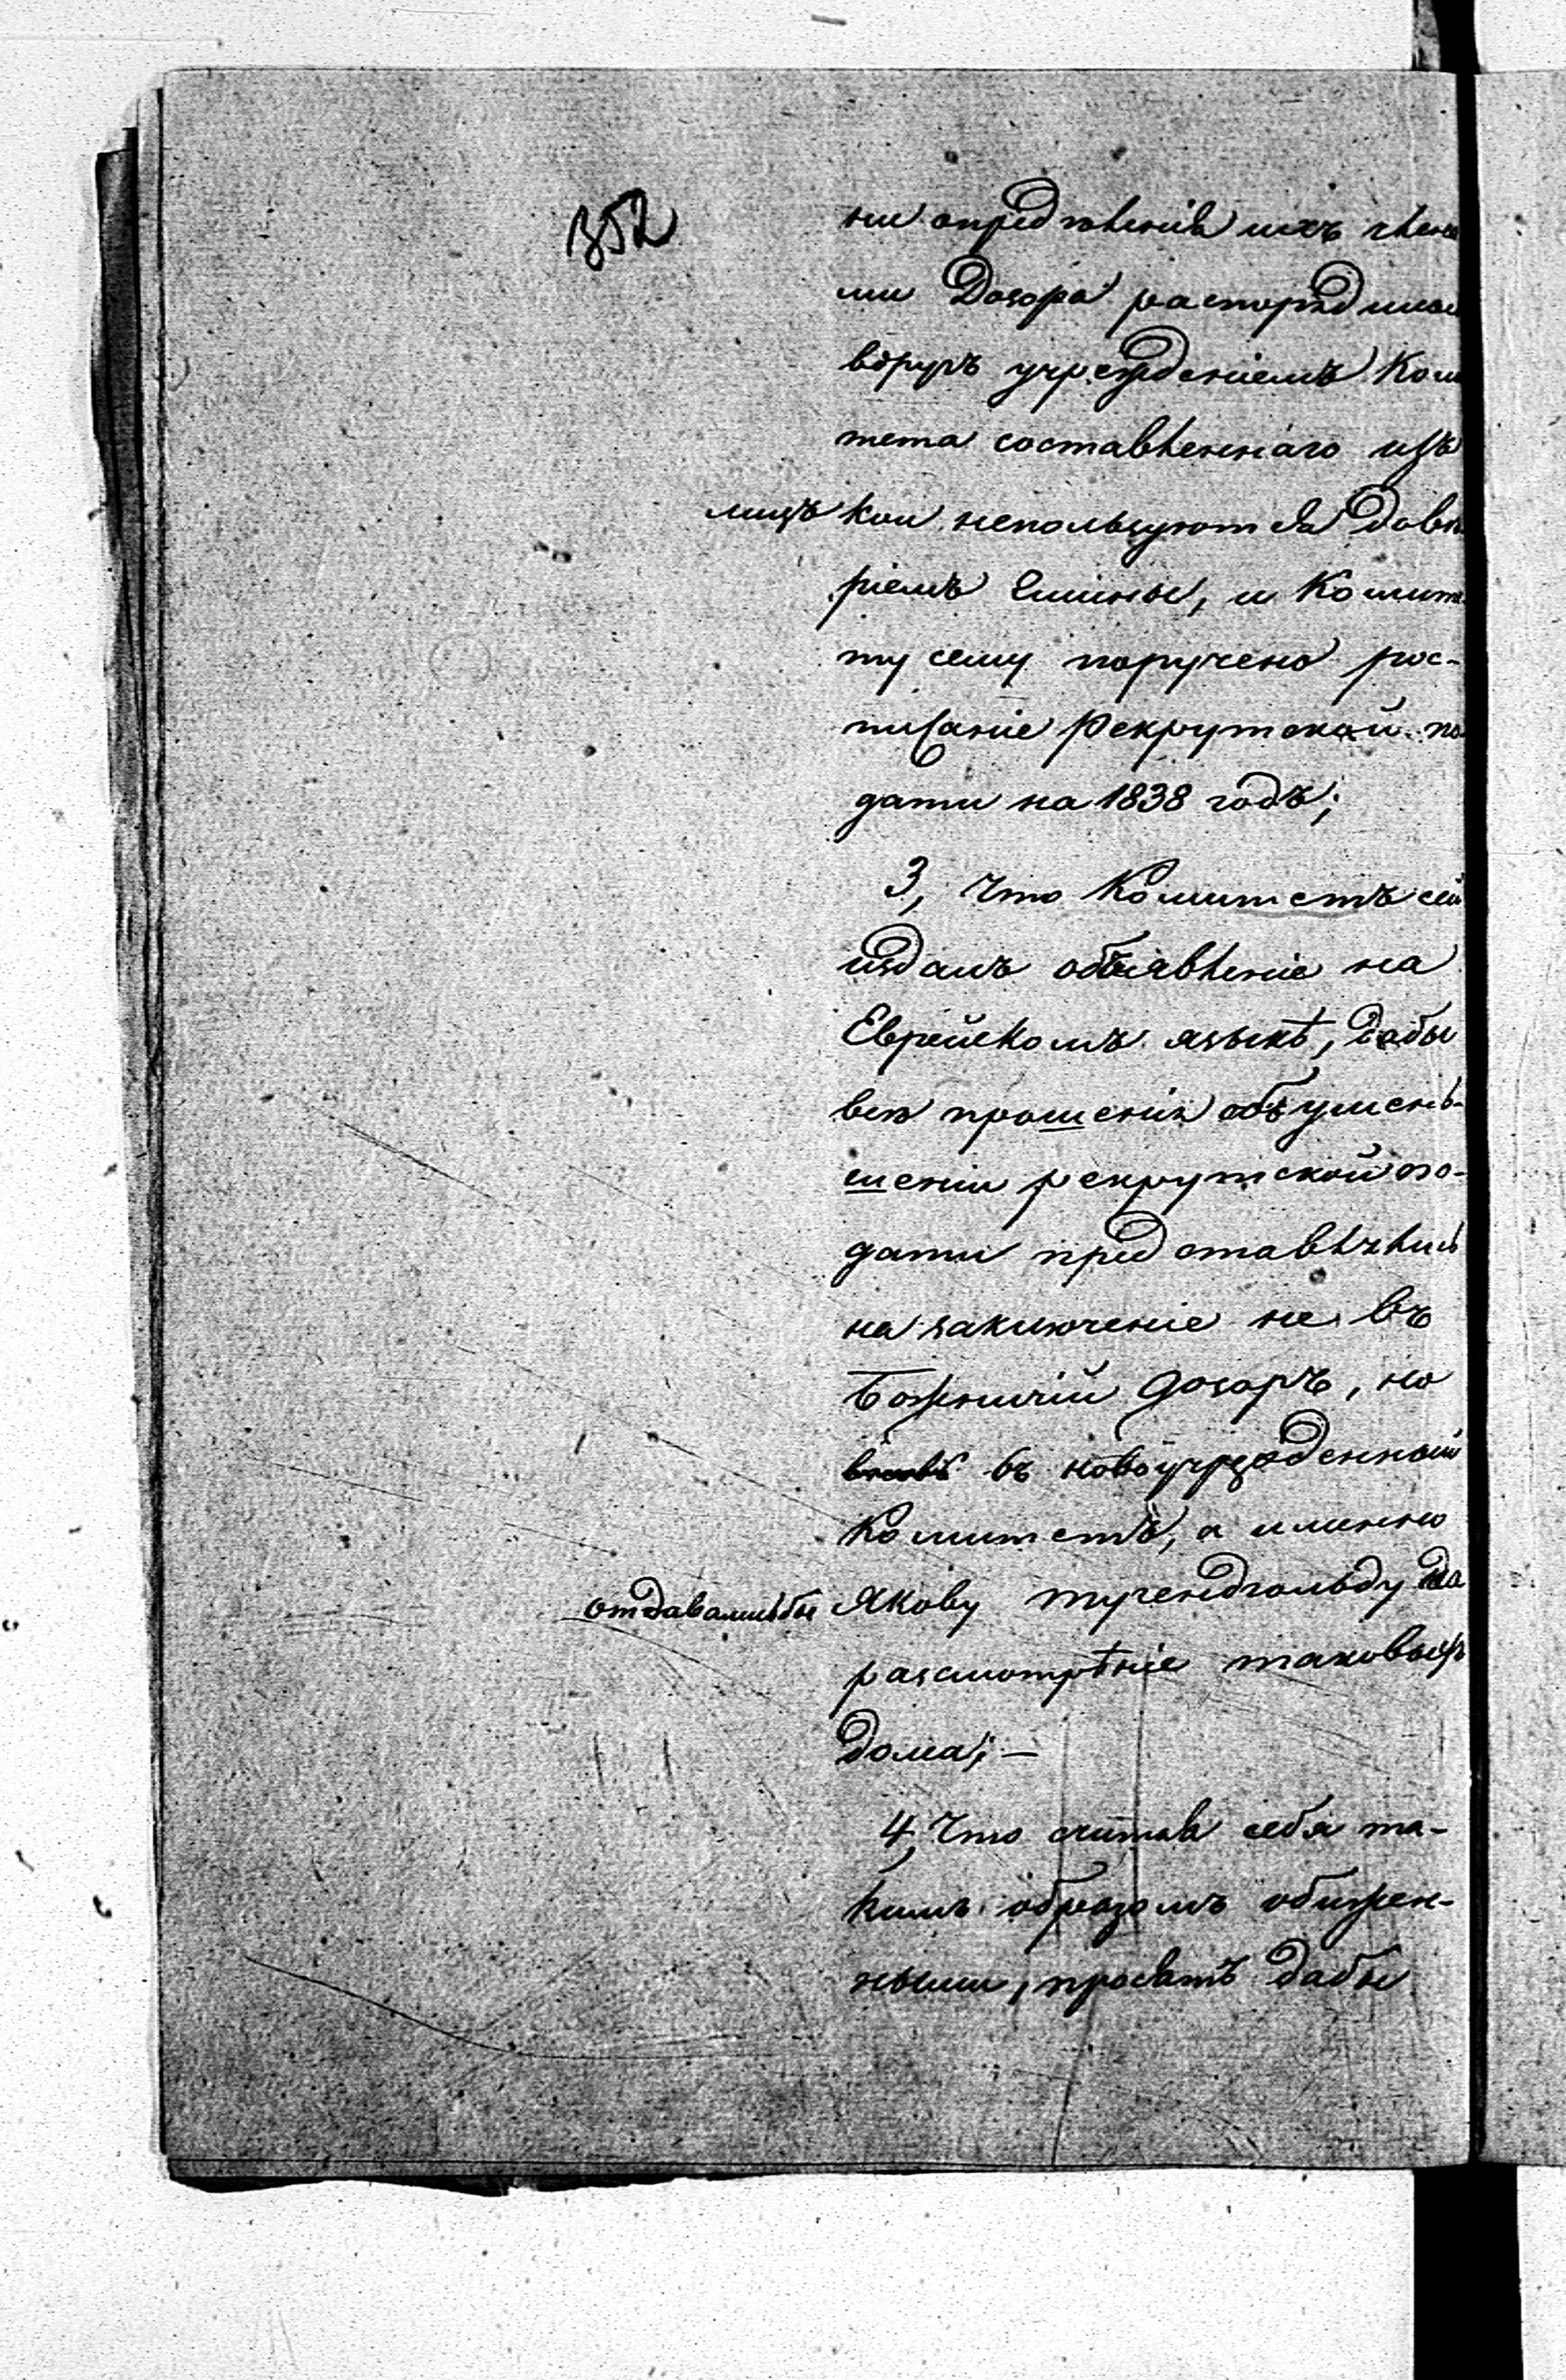 352
ни опредѣленія ихъ члена
ми Дозора распорядился
вдругъ учрежденіемъ Коми
тета составленнаго изъ
лицъ кои непользуются довѣ
ріемъ Гмины, и Комите
ту сему поручено рос-
писаніе Рекрутской по
дати на 1838 годъ;
3, Что Комитетъ сей
издалъ объявленіе на
Еврейскомъ языкѣ, дабы
всѣ прошенія объ умень-
шеніи рекрутской по-
дати представлялись
на заключеніе не въ
Божничій Дозоръ, но
въ новоучрежденный
Комитетъ, а именно
отдавались бы Якову Тугендгольду на
разсмотрѣніе таковыхъ
дома; —
4, Что считая себя та-
кимъ образомъ обижен-
ными, просятъ дабы